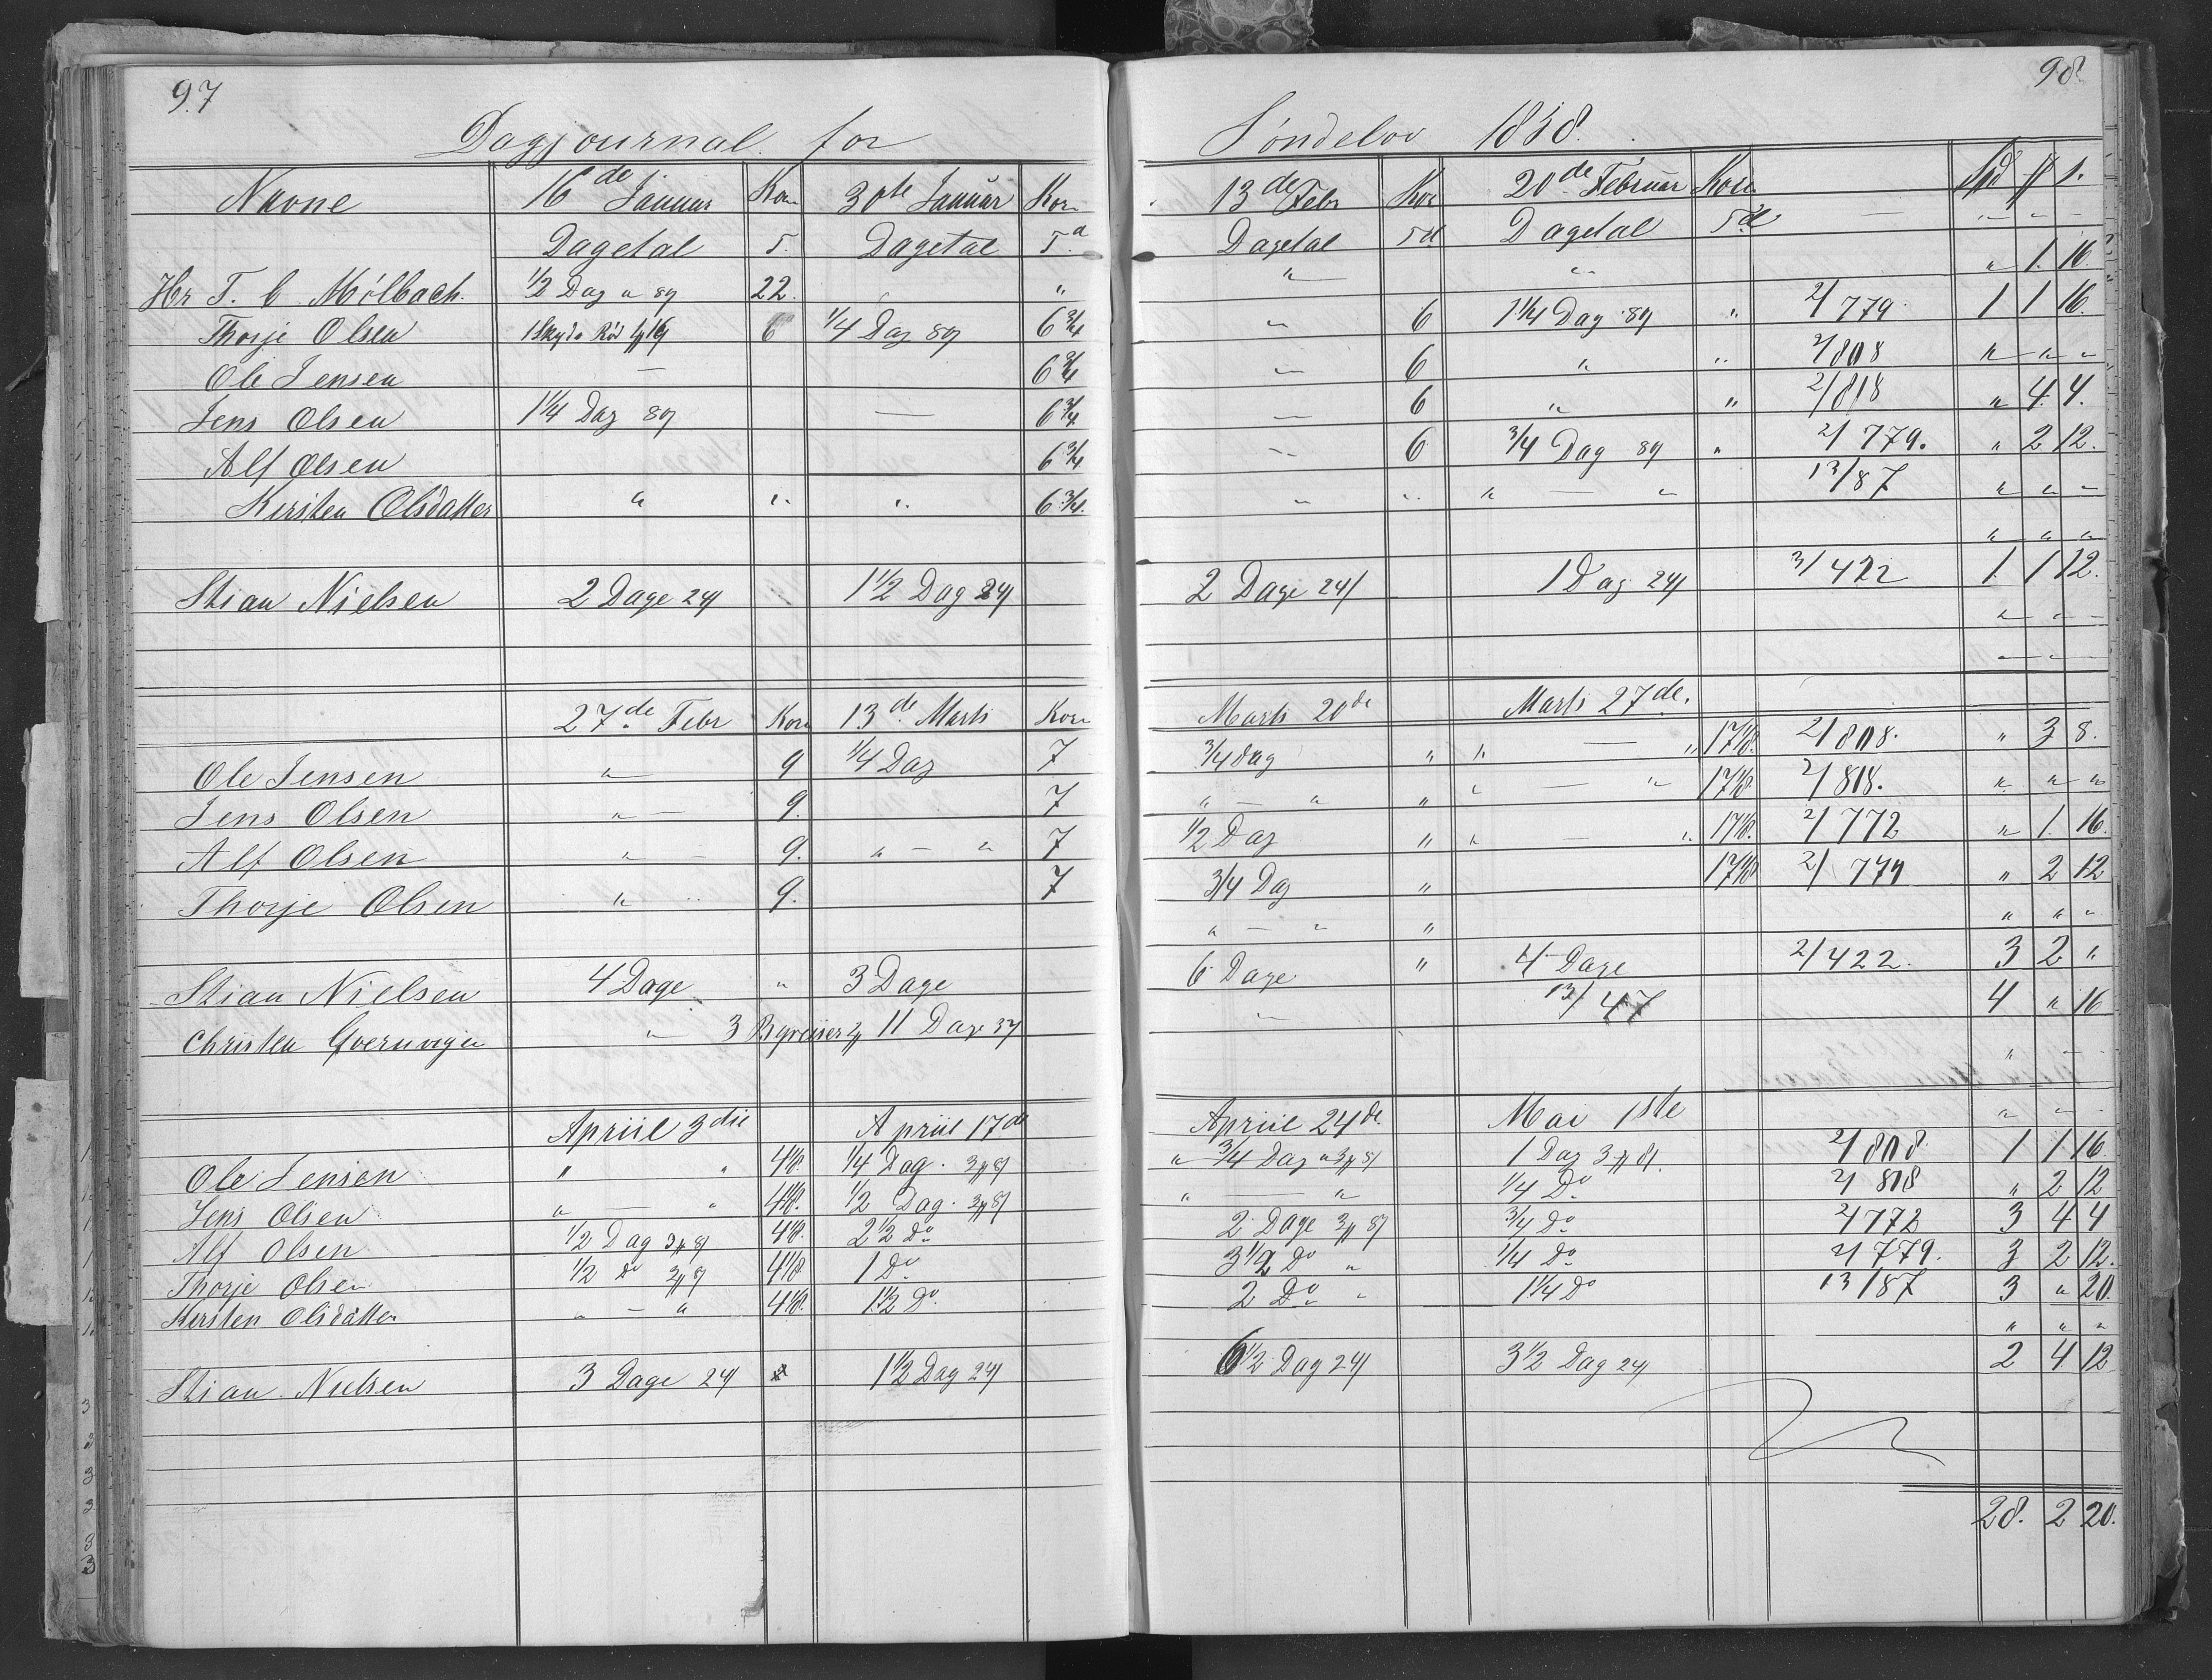 97
98
Dagjournal for Søndelov 1858.
Navne 16de Januar Korn 30te Januar Korn 13de Febr Kor 20de Februar Korn Spd # s.
Dagetal T. Dagetal Td Dagetal Td Dagetal Td — " — " —
Hr T. C. Mølbach. 1/2 Dag a 8# 22. " " " " 1. 16.
Thorje Olsen 6 1/4 Dag 8# 6 3/4 " 6 1 1/4 Dag 8# " 2/779. 1 1 16.
Ole Jensen — 6 3/4 " 6 " " 2/808 " " "
Jens Olsen 1 1/4 Dag 8# — 6 3/4 " 6 " " 2/818 " 4 4.
Alf Olsen 6 3/4 " 6 3/4 Dag 8# " 2/779. " 2 12.
Kirsten Olsdatter " " " 6 3/4. " " " — " 13/87 " " "
" " "
Stian Nielsen 2 Dage 24# 1 1/2 Dag 24# 2 Dage 24# 1 Dag 24# 3/422 1. 1 12.
" — " —
— " —
27de Febr Korn 13de Marts Korn Marts 20de Marts 27de.
Ole Jensen " 9 1/4 Dag 7 3/4 dag " " — " 17 1/8. 2/808. " 3 8.
Jens Olsen " — 9. 7 " — " " " — " 17 1/8. 2/818. " " "
Alf Olsen " — 9. " — " 7 1/2 Dag " " — " 17 1/8. 2/772 " 1. 16.
Thorje Olsen " " 9. 7 3/4 Dag " 17 1/8 2/779 " 2 12
" — " " " " "
Stian Nielsen 4 Dage " 3 Dage 6 Dage " 4 Dage 2/422. 3 2 "
Christen Qvernvigen " 3 11 Dage " 13/47 4 " 16
" —
Apriil 3die Apriil 17de Apriil 24de. Mai 1ste " " -
Ole Jensen " " 4 1/8. 1/4 Dag. " 3/4 Dag 1 Dag 2/808 1 1 16.
Jens Olsen " — " 4 1/8. 1/2 Dag. " — " 1/4 Do 2/818 " 2 12
Alf Olsen 1/2 Dag 4 1/8. 2 1/2 Do 2 Dage 3/4 Do 2/772 3 4 4
Thorje Olsen 1/2 do 4 1/8 1 Do 3 1/2 Do " 1/4 do 2/779. 3 2 12.
Kirsten Olsdatter " — " 4 1/8. 1 1/2 Do. 2 Do " 1 1/4 Do 13/87 3 " 20.
" " "
Stian Nielsen 3 Dage 24# 1 1/2 Dag 24# 6 1/2 Dag 24# 3 1/2 Dag 24# 2 4. 12
28. 2 20.